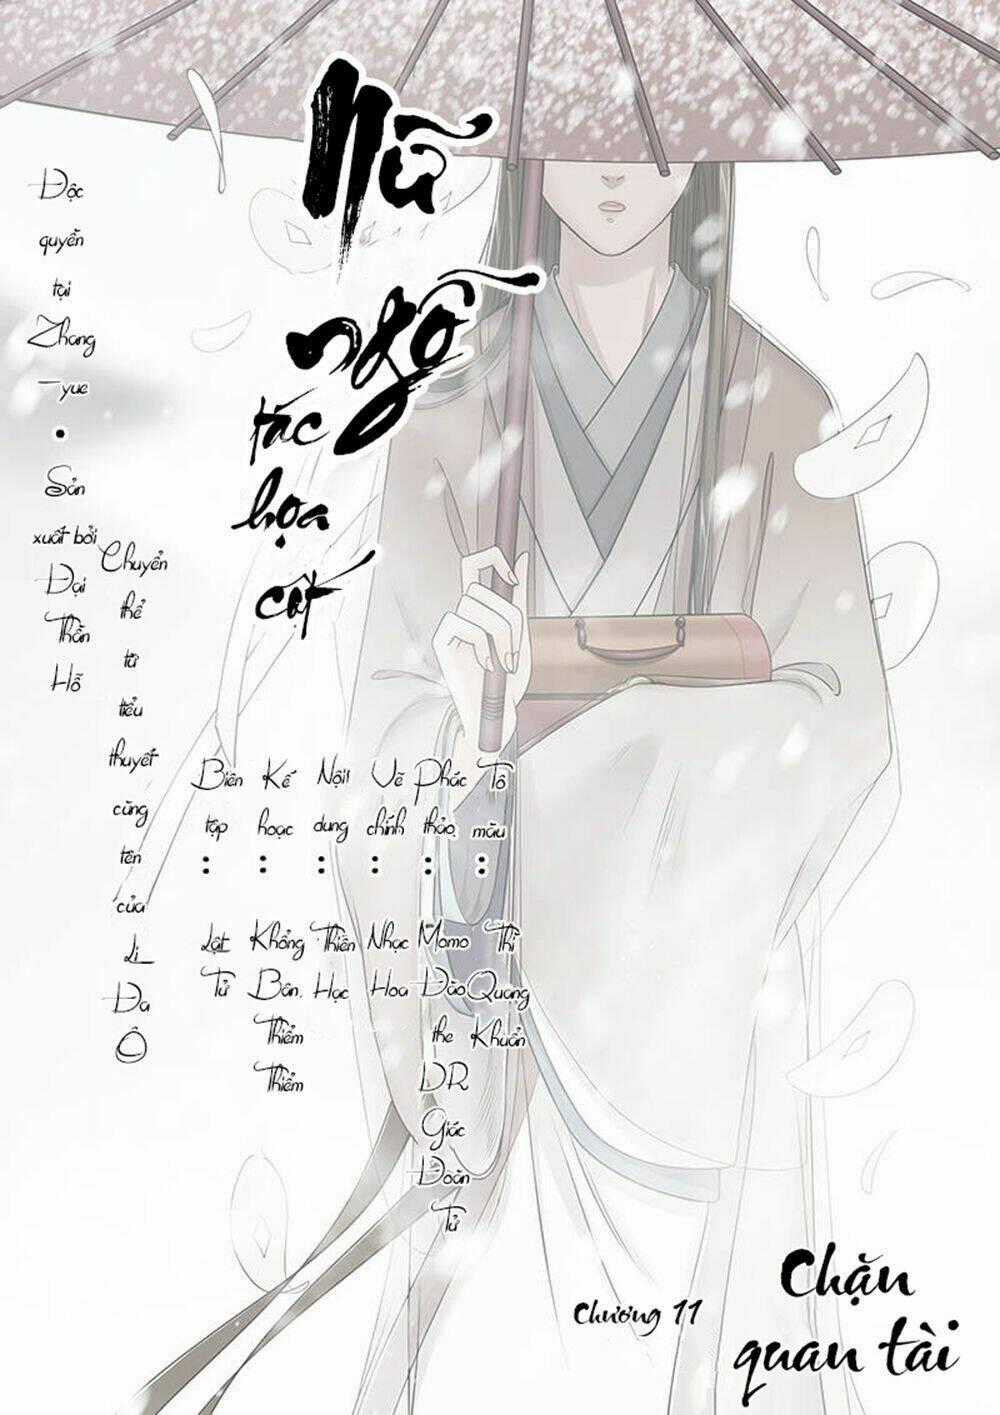 Nữ
ngỗ
tác
họa
cốt
Độc
quyền
tại
Zhang
-yue
•
Sản
xuất bởi
Đại
Thần
Hỗ
Chuyển
thể
từ
tiểu
thuyết
cùng
tên
của
Li
Đa
Ô
Biên
tập
:
Lật
Tử
Kế
hoạc
:
Khổng
Bân,
Thiểm
Thiểm
Nội
dung
:
Thiên
Hạc
Vẽ
chính
:
Nhạc
Hoa
Phác
thảo
:
Momo
Đào
the
DR
Giác
Đoàn
Tử
Tô
màu
:
Thì
Quang
Khuẩn
Chương 11
Chặn
quan tài